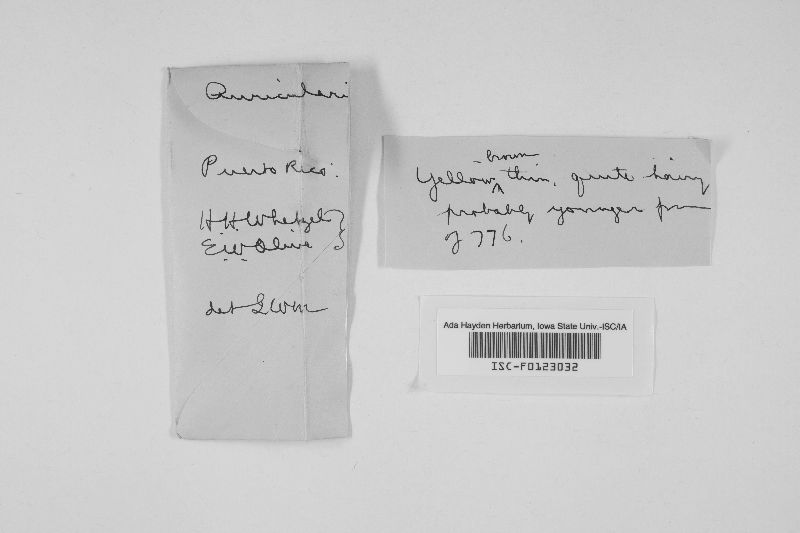 Auriculari
Puerto Rico.
H.H. Whetzel }
E.W. Olive }
det GWM
-brown
Yellow ^ thin, quite hairy
probably younger form
of 776.
Ada Hayden Herbarium, Iowa State Univ.-ISC/IA
ISC-F0123032